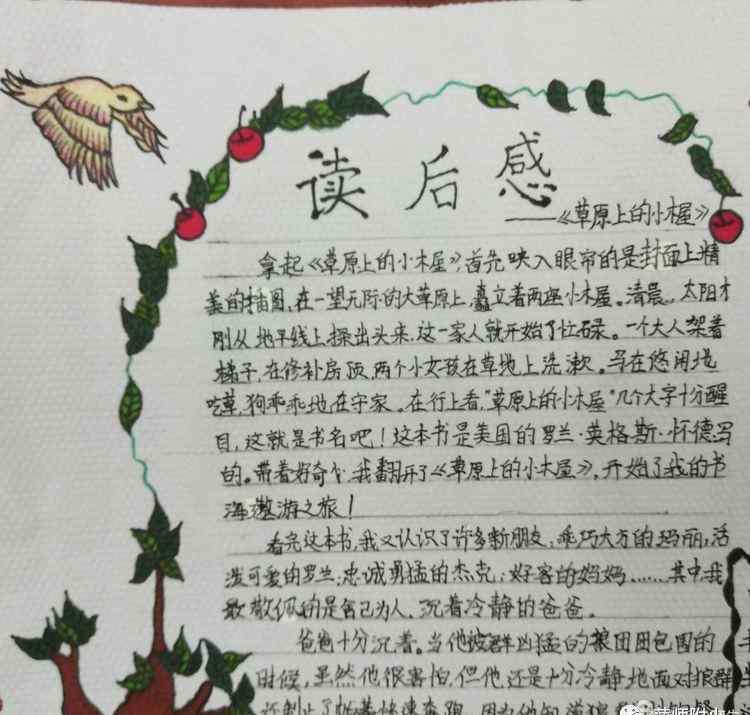 读后感
——《草原上的小木屋》
拿起《草原上的小木屋》,首先映入眼帘的是封面上精
美的插图,在一望无际的大草原上,矗立着两座小木屋。清晨,太阳才
刚从地平线上探出头来,这一家人就开始了忙碌。一个大人架着
梯子,在修补房顶,两个小女孩在草地上洗漱。马在悠闲地
吃草,狗乖乖地在守家。在行上看,“草原上的小木屋”几个大字十分醒
目,这就是书名吧!这本书是美国的罗兰·英格斯·怀德写
的。带着好奇心,我翻开了《草原上的小木屋》,开始了我的书
海遨游之旅!
看完这本书,我又认识了许多新朋友:乖巧大方的玛丽;活
泼可爱的罗兰;忠诚勇猛的杰克;好客的妈妈……其中,我
最敬佩的是舍己为人、沉着冷静的爸爸。
爸爸十分沉着。当他被群凶猛的狼团团包围的
时候,虽然他很害怕,但他还是十分冷静地面对狼群
还制止了 快速奔跑,因为他知道